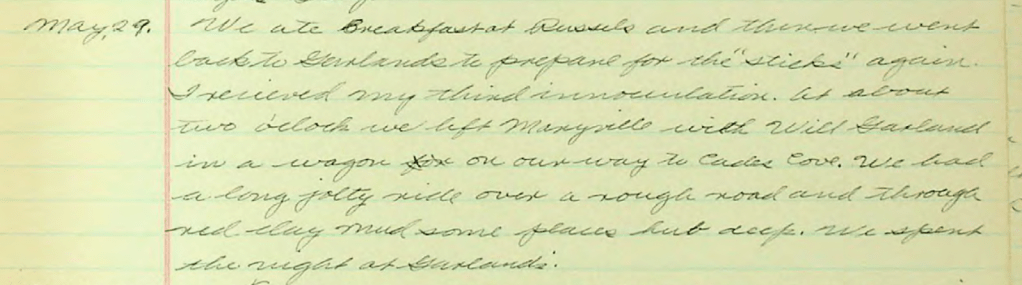 May, 29. We ate Breakfast at Russels and then we went
back to Garlands to prepare for the "sticks" again.
I recieved my third innoculation. At about
two o'clock we left Maryville with Will Garland
in a wagon on our way to Cades Cove. We had
a long jolty ride over a rough road and through
red clay mud some places hub deep. We spent
the night at Garlands.